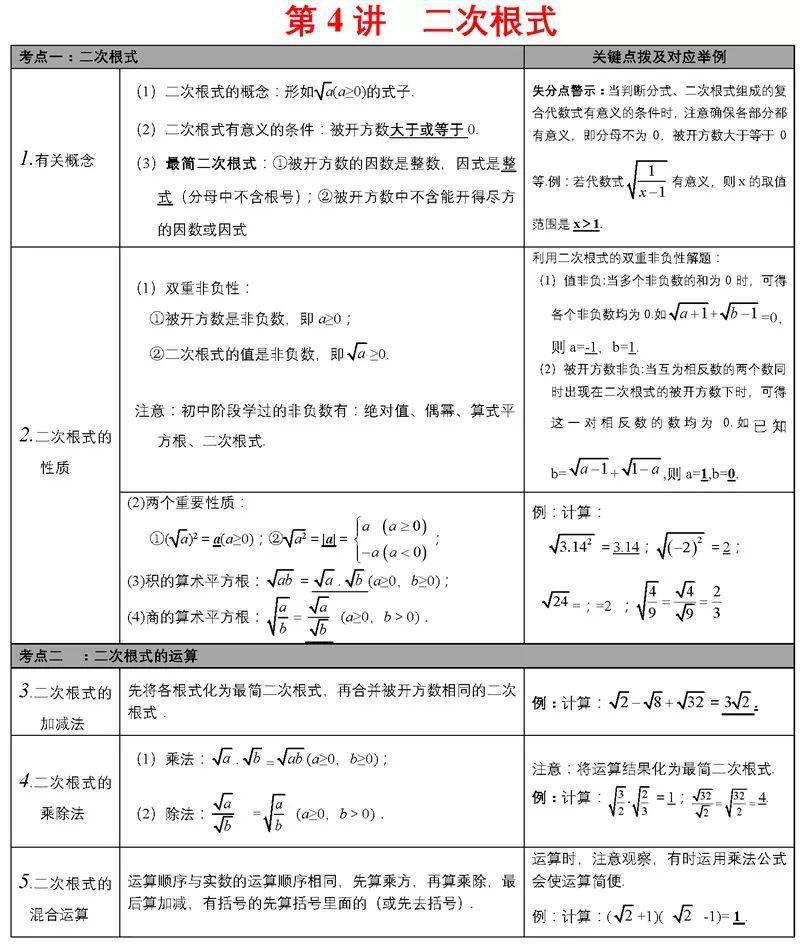 第 4 讲 二次根式
考点一：二次根式
关键点拨及对应举例
1.有关概念
（1）二次根式的概念：形如√a(a≥0)的式子.
（2）二次根式有意义的条件：被开方数大于或等于 0.
（3）最简二次根式：①被开方数的因数是整数，因式是整
式（分母中不含根号）；②被开方数中不含能开得尽方
的因数或因式
失分点警示：当判断分式、二次根式组成的复
合代数式有意义的条件时，注意确保各部分都
有意义，即分母不为 0，被开方数大于等于 0
等.例：若代数式√(1/(x−1)) 有意义，则 x 的取值
范围是 x＞1.
2.二次根式的
性质
（1）双重非负性：
①被开方数是非负数，即 a≥0；
②二次根式的值是非负数，即√a ≥0.
注意：初中阶段学过的非负数有：绝对值、偶幂、算式平
方根、二次根式.
利用二次根式的双重非负性解题：
（1）值非负:当多个非负数的和为 0 时，可得
各个非负数均为 0.如√(a+1)+√(b−1)=0,
则 a=-1，b=1.
（2）被开方数非负:当互为相反数的两个数同
时出现在二次根式的被开方数下时，可得
这一对相反数的数均为 0.如已知
b=√(a−1)+√(1−a),则 a=1,b=0.
(2)两个重要性质：
①(√a)²＝a(a≥0)；②√a²＝|a|＝{a (a≥0) −a (a<0)；
(3)积的算术平方根：√ab＝√a·√b(a≥0，b≥0)；
(4)商的算术平方根：√(a/b)＝√a/√b (a≥0，b＞0)．
例：计算：
√3.14²＝3.14；√(−2)²＝2；
√24＝；=2 ；√(4/9)＝√4/√9＝2/3
考点二 ：二次根式的运算
3.二次根式的
加减法
先将各根式化为最简二次根式，再合并被开方数相同的二次
根式．
例：计算：√2−√8+√32＝3√2．
4.二次根式的
乘除法
（1）乘法：√a·√b＝√ab(a≥0，b≥0)；
（2）除法：√a/√b ＝√(a/b) (a≥0，b＞0)．
注意：将运算结果化为最简二次根式.
例：计算：√(3/2)·√(2/3)＝1；√32/√2＝√(32/2)＝4.
5.二次根式的
混合运算
运算顺序与实数的运算顺序相同，先算乘方，再算乘除，最
后算加减，有括号的先算括号里面的（或先去括号）．
运算时，注意观察，有时运用乘法公式
会使运算简便.
例：计算：(√2+1)( √2 -1)= 1 .